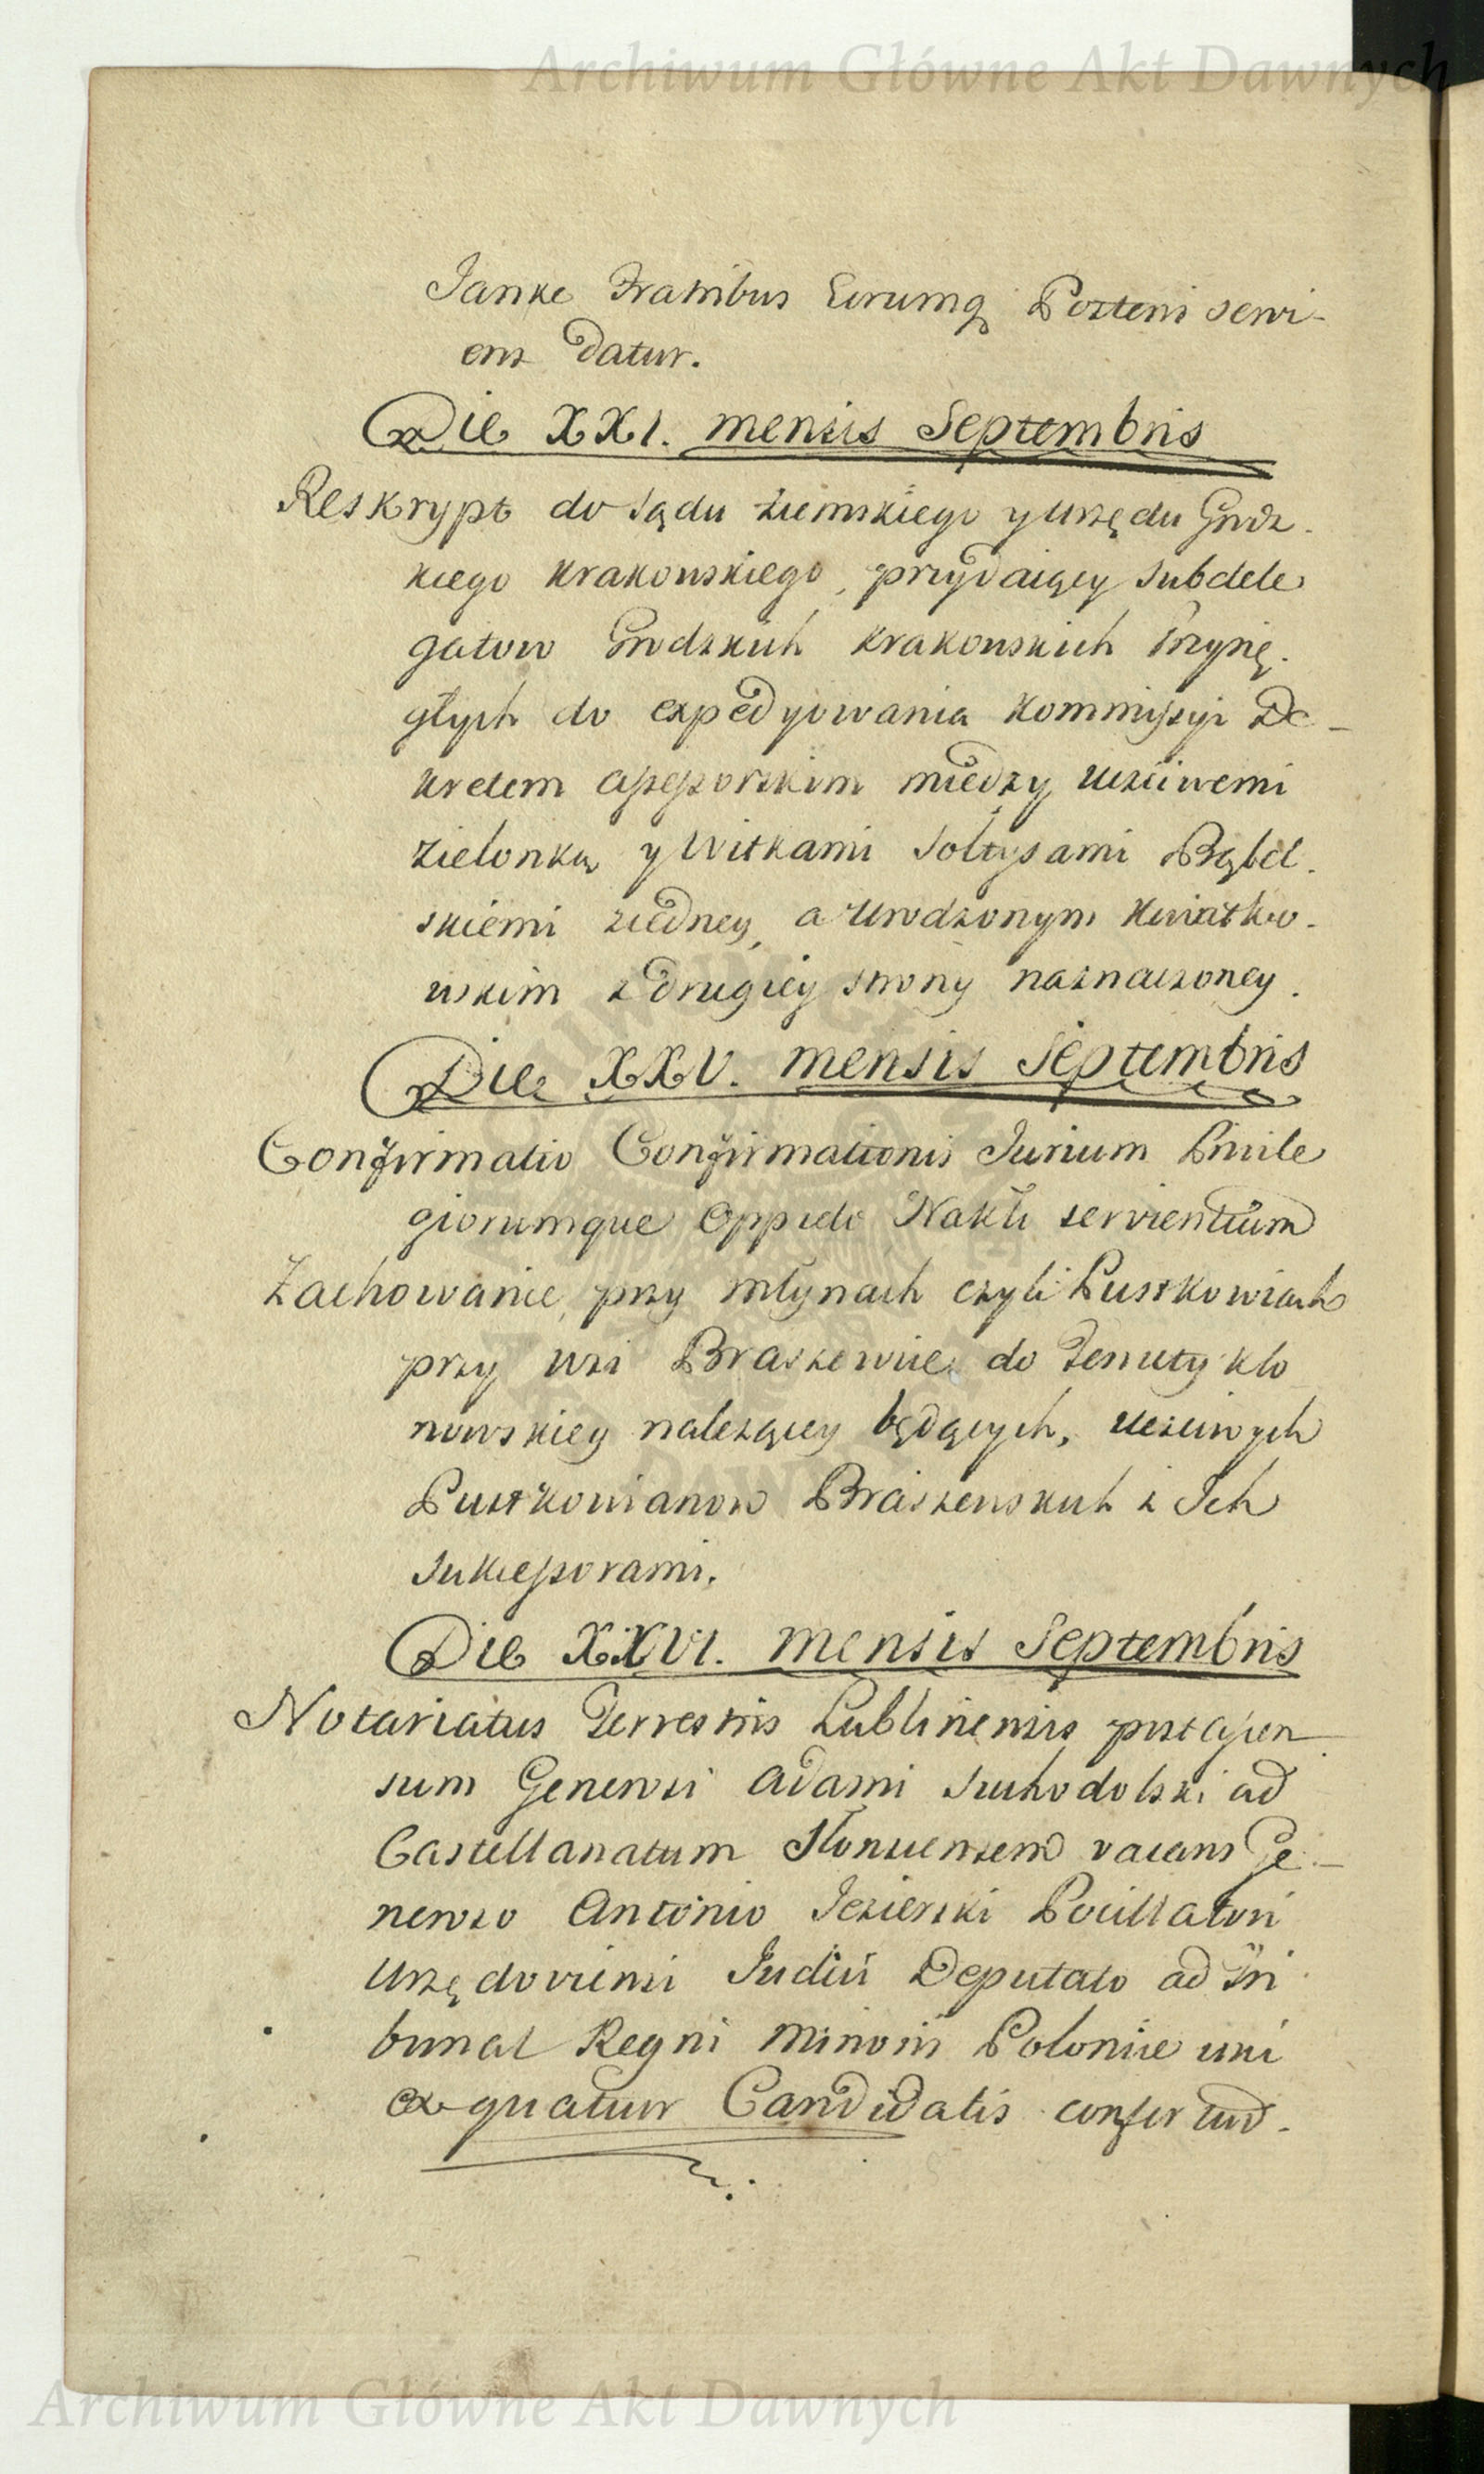 Archiwum Główne Akt Dawnych
Janke Fratribus Eorumq Posteris servi-
ens Datur.
Die XXI. mensis Septembris
Reskrypt do Sądu Ziemskiego y Urzędu Grodz-
kiego Krakowskiego, przydaiący Subdele
gatow Grodzkich Krakowskich Przysię-
głych do expedyiowania Kommissyi De-
kretem Assessorskim między Uczciwemi
Zielonką y Witkami Sołtysami Bąbel-
skiemi z iedney, a Urodzonym Kwiatko-
wskim z Drugiey strony naznaczoney.
Die XXV. mensis Septembris
Confirmatio Confirmationis Jurium Privile
giorumque Oppido Nakli servientium
Zachowanie przy młynach czyli Pustkowiach
przy wsi Braszewice do Tenuty Klo
nowskiey należącey będących, Uczciwych
Pustkowianow Braszewskich z Ich
Sukcessorami.
Die XXVI. mensis Septembris
Notariatus Terrestris Lublinensis post Ascen
sum Generosi Adami Suchodolski ad
Castellanatum Słonsiensem vacans Ge-
neroso Antonio Jezierski Pocillatori
Urzędoviensi Judici Deputato ad Tri
bunal Regni Minoris Poloniæ uni
ex quatuor Candidatis confertur.
Archiwum Główne Akt Dawnych